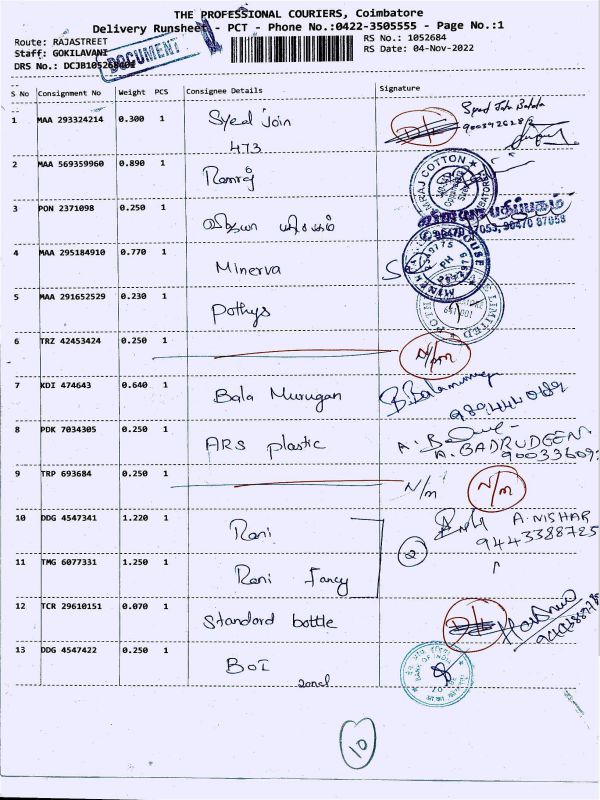 THE PROFESSIONAL COURIERS, Coimbatore
Delivery Runsheet - PCT - Phone No.:0422-3505555 - Page No.:1
Route: RAJASTREET
RS No.: 1052684
Staff: GOKILAVANI
RS Date: 04-Nov-2022
DRS No.: DCJB1052684
DOCUMENT
S No Consignment No Weight PCS Consignee Details Signature
1 MAA 293324214 0.300 1 Syed join
473
2 MAA 569359960 0.890 1 Ramraj
RAMRAJ COTTON
3 PON 2371098 0.250 1 விஜயா பதிப்பகம்
விஜயா பதிப்பகம்
90470 87053, 90470 87058
4 MAA 295184910 0.770 1 Minerva
HOUSE
5 MAA 291652529 0.230 1 Pothys
LIMITED
641 001
6 TRZ 42453424 0.250 1
7 KDI 474643 0.640 1 Bala Murugan
8 PDK 7034305 0.250 1 ARS plastic
A. BADRUDEEN
9 TRP 693684 0.250 1 N/m N/m
10 DDG 4547341 1.220 1 Rani
A. NISHAR
9443388725
2
11 TMG 6077331 1.250 1 Rani Fancy
12 TCR 29610151 0.070 1 Standard bottle
13 DDG 4547422 0.250 1 BOI
zonal
BANK OF INDIA
10